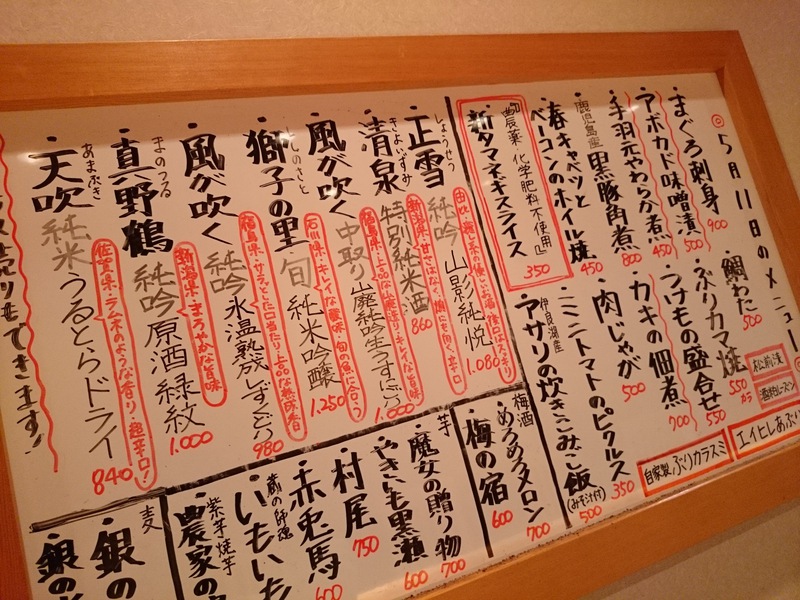 5月11日のメニュー
まぐろ刺身 900
アボカド味噌漬 500
手羽元やわらか煮 450
鹿児島産
黒豚角煮 800
春キャベツと
ベーコンのホイル焼 450
『農薬・化学肥料不使用』
新タマネギスライス 350
鯛わた 500
ぶりカマ焼 550から
つけもの盛合せ 550
カキの佃煮 700
肉じゃが 500
ミニトマトのピクルス 350
伊良湖産
アサリの炊きこみご飯
(みそ汁付) 500
松前漬
酒粕レーズン
エイヒレあぶり
自家製 ぶりカラスミ
しょうせつ
正雪 純吟 山影純悦 1.080
きよいずみ
清泉 特別純米酒 860
風が吹く 中取り 山廃純吟生うすにごり 1.000
ししのさと
獅子の里 旬 純米吟醸 1.250
石川県・キレイな酸味・旬の魚に合う
風が吹く 純吟 氷温熟成しずくどり 980
福島県・サラッとした口当たり・上品な熟味香
まのつる
真野鶴 純吟 原酒 緑紋 1.000
新潟県・まろやかな旨味
あまぶき
天吹 純米 うるとらドライ 840
佐賀県・ラムネのような香り・超辛口!
もできます!
梅酒
めろめろメロン 700
梅の宿 600
芋
魔女の贈り物 700
やきいも黒瀬 600
村尾 750
赤兎馬 600
蔵の師魂
いもいも
紫芋焼芋
農家の
麦
銀の
銀の